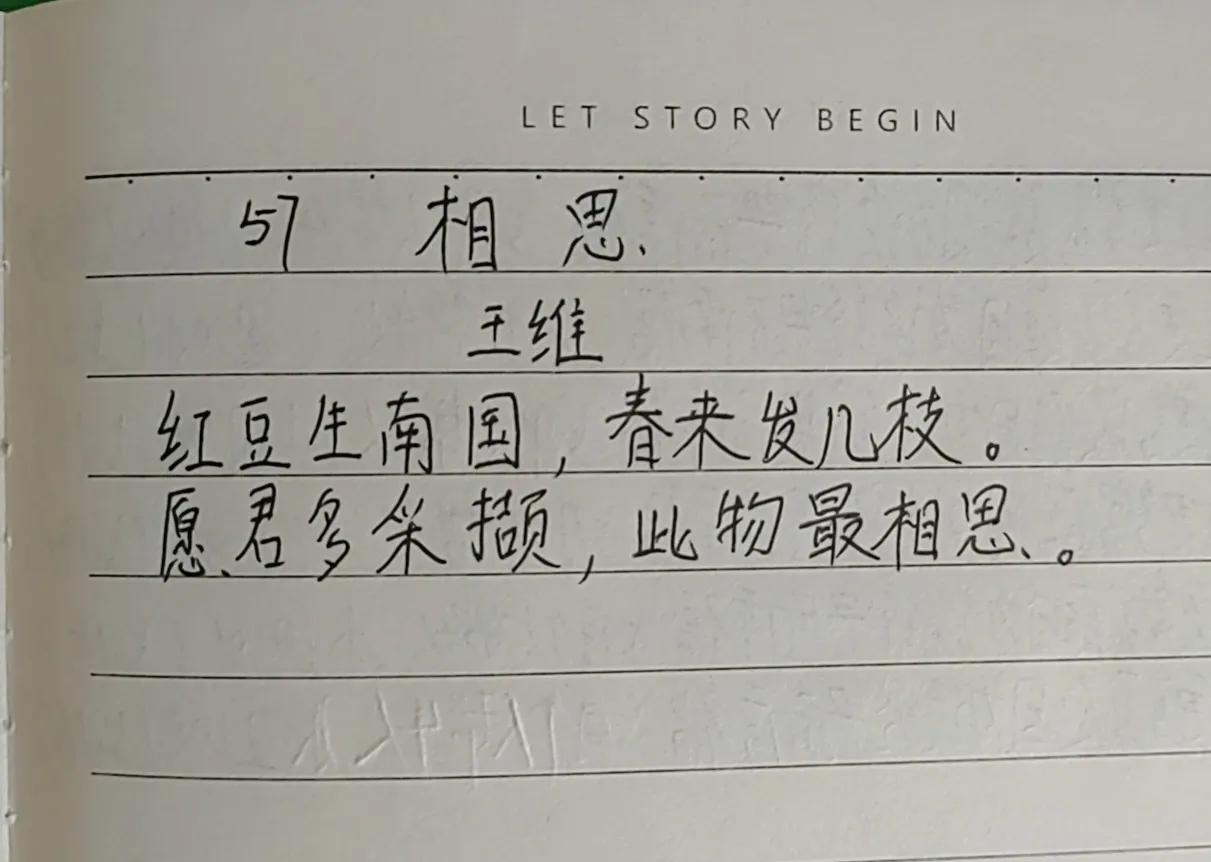 LET STORY BEGIN
57 相思
王维
红豆生南国，春来发几枝。
愿君多采撷，此物最相思。